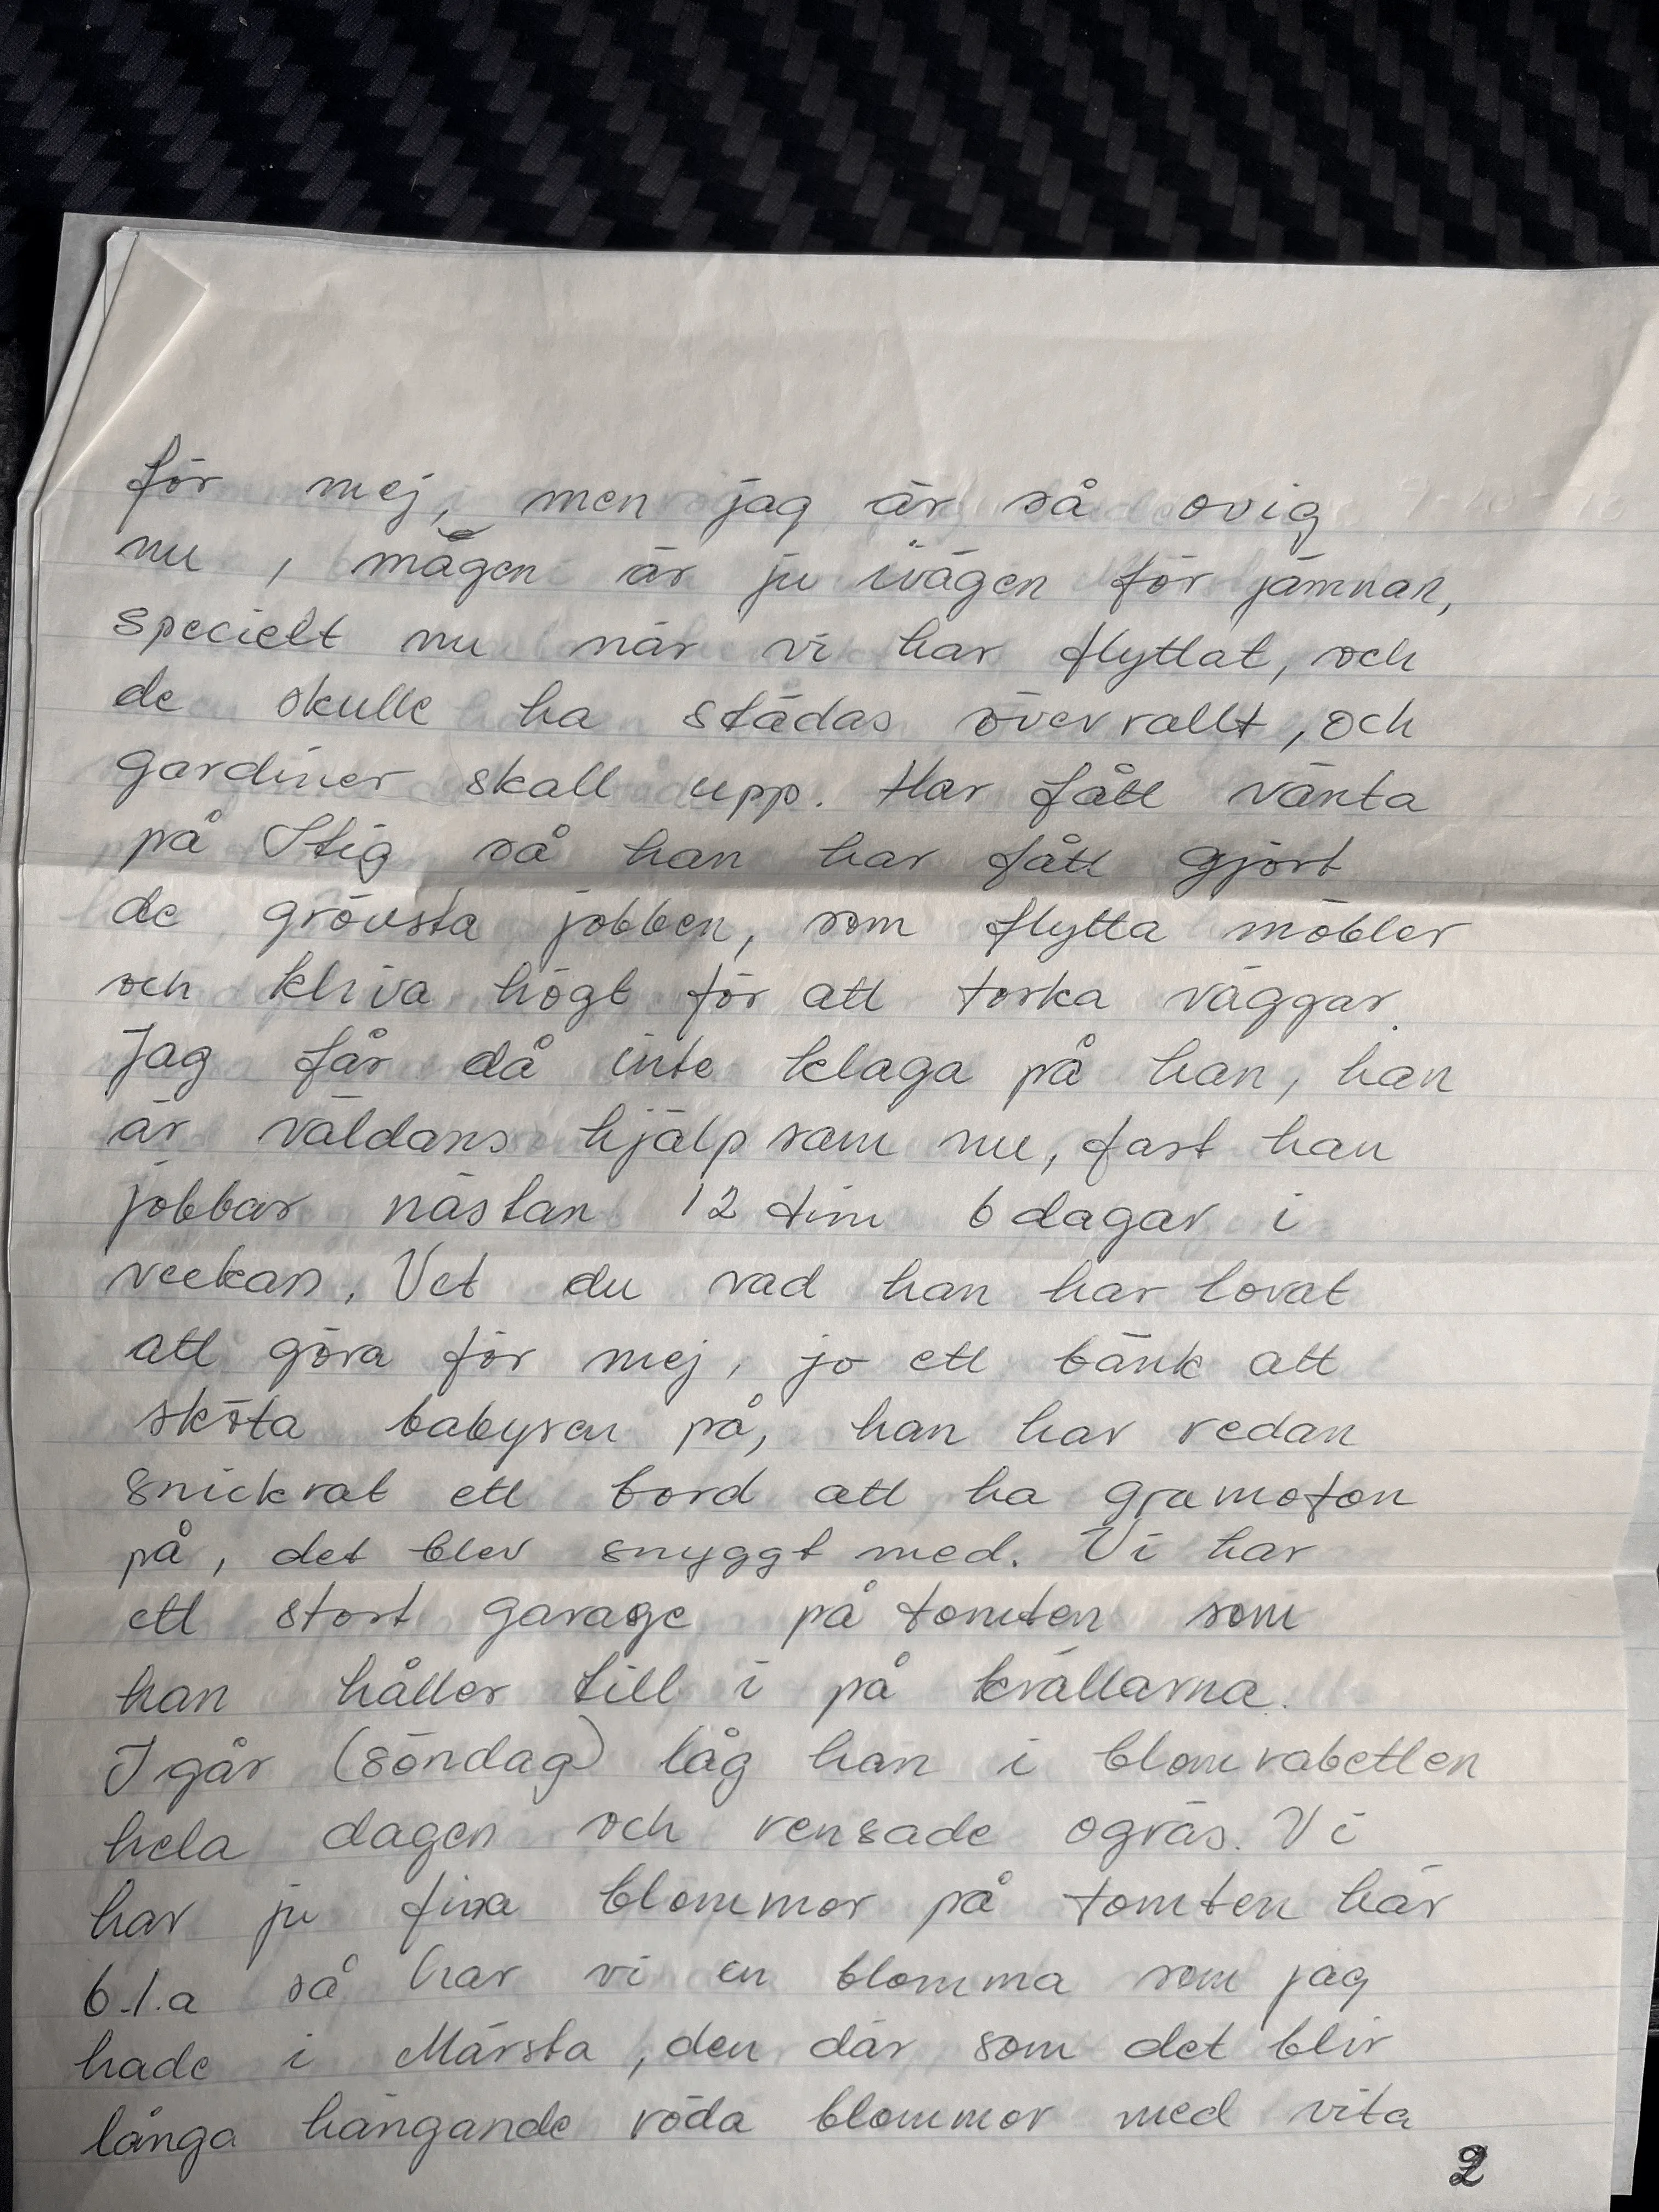 för mej, men jag är så ovig
nu, mågen är ju ivägen för jämnan,
specielt nu när vi har flyttat, och
de skulle ha städas överrallt, och
gardiner skall upp. Har fått vänta
på Stig så han har fått gjort
de grövsta jobben, som flytta möbler
och kliva högt för att torka väggar.
Jag får då inte klaga på han, han
är väldans hjälpsam nu, fast han
jobbar nästan 12 tim 6 dagar i
veckan. Vet du vad han har lovat
att göra för mej, jo ett bänk att
sköta babysen på, han har redan
snickrat ett bord att ha gramofon
på, det blev snyggt med. Vi har
ett stort garage på tomten som
han håller till i på kvällarna.
Igår (söndag) låg han i blomrabetten
hela dagen och rensade ogräs. Vi
har ju fina blommor på tomten här
b.l.a så har vi en blomma som jag
hade i Märsta, den där som det blir
långa hängande röda blommor med vita
2